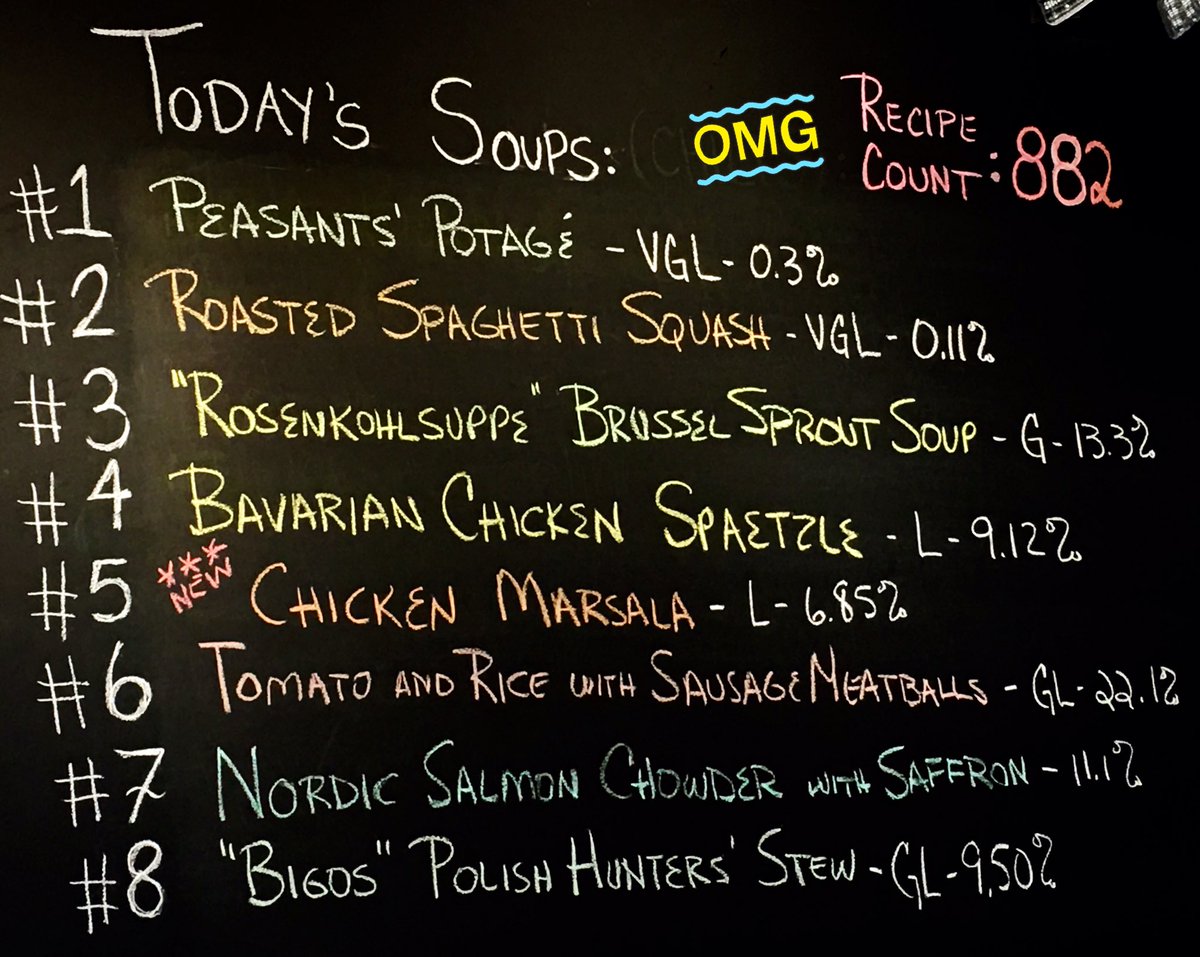 TODAY'S SOUPS:
OMG
RECIPE
COUNT: 882
#1 PEASANTS' POTAGÉ - VGL - 0.3%
#2 ROASTED SPAGHETTI SQUASH - VGL - 0.11%
#3 "ROSENKOHLSUPPE" BRUSSEL SPROUT SOUP - G - 13.3%
#4 BAVARIAN CHICKEN SPAETZLE - L - 9.12%
#5 *** NEW CHICKEN MARSALA - L - 6.85%
#6 TOMATO AND RICE WITH SAUSAGE MEATBALLS - GL - 22.1%
#7 NORDIC SALMON CHOWDER WITH SAFFRON - 11.1%
#8 "BIGOS" POLISH HUNTERS' STEW - GL - 9.50%